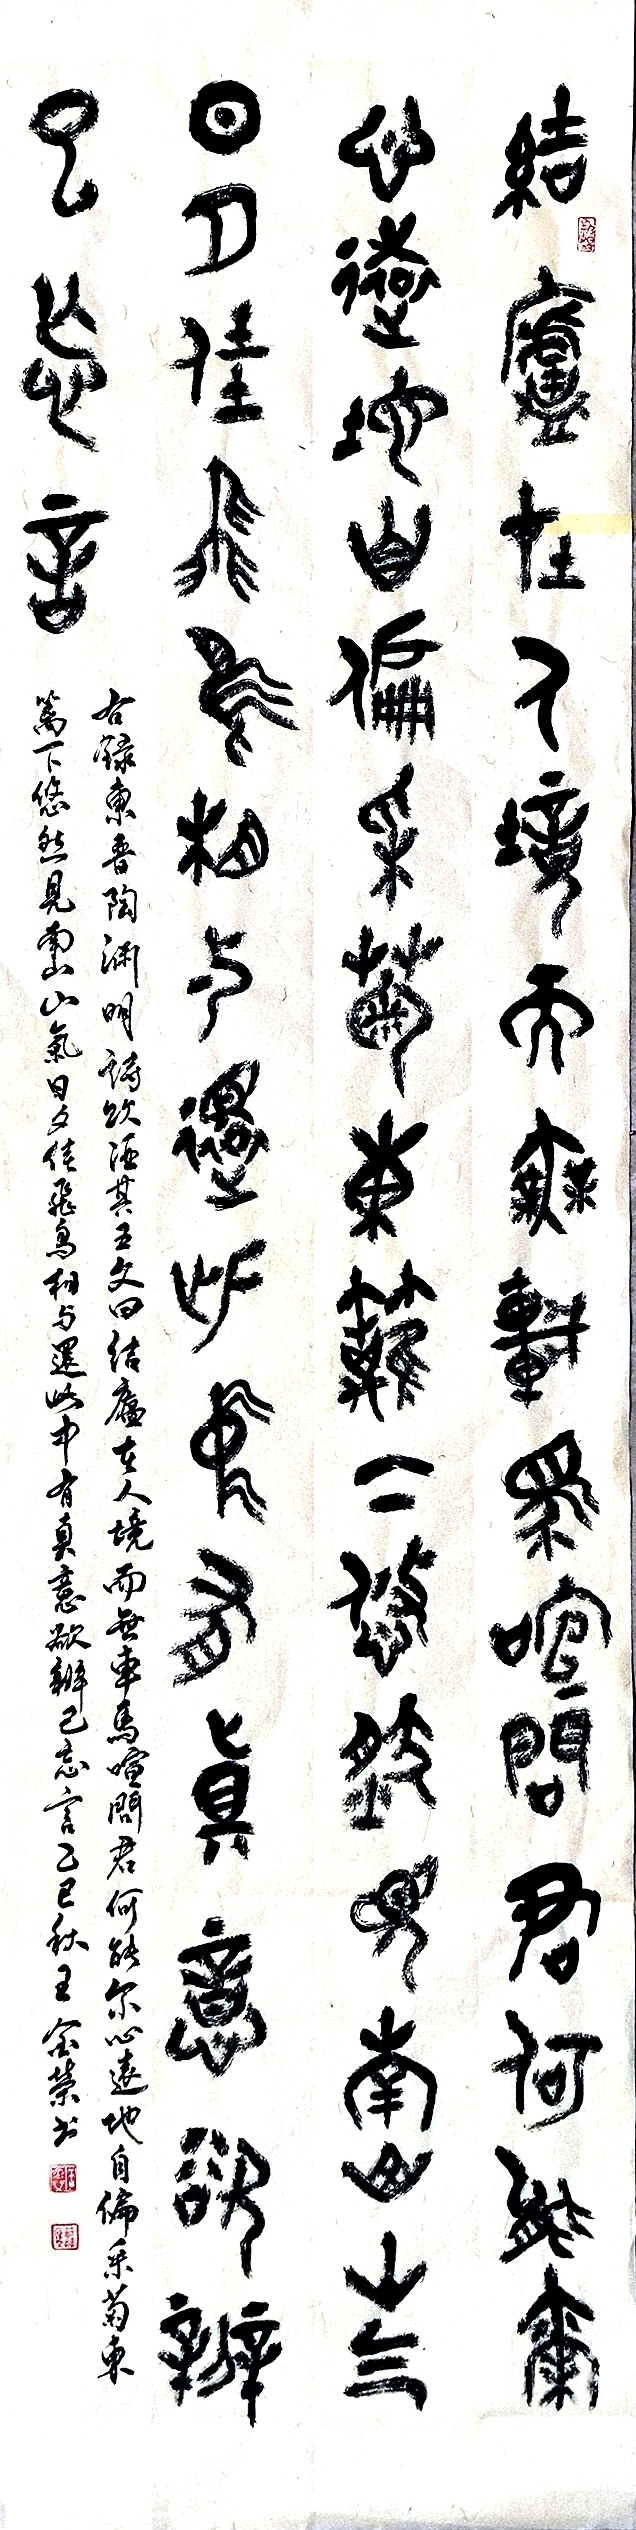 結廬在人境而無車馬喧問君何能爾
心遠地自偏采菊東籬下悠然見南山山气
日夕佳飛鳥相与還此中有真意欲辯
已忘言
右録東晋陶渊明詩飲酒其五文曰结廬在人境而無車馬喧問君何能尔心遠地自偏采菊東
篱下悠然見南山山氣日夕佳飛鳥相与還此中有真意欲辨已忘言乙巳秋王金榮书